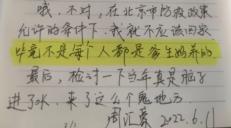 哦，不对，在北京市防疫政策
允许的条件下，我就不应该回家
毕竟不是每个人都是爹生妈养的
最后，检讨一下当年真是脑子
进了水，来了这么个鬼地方
周汇蓉 2022.6.11